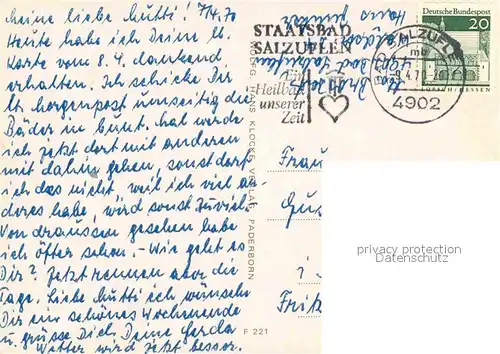 meine liebe Mutti! 9/4. 70
Heute habe ich Deine lb.
Karte vom 8. 4. dankend
erhalten. Ich schicke Dir
lt. Morgenpost umseitig die
Bäder in bunt. hal werde
ich jetzt dort mit anderen
mit dahin gehen, sonst darf
ich das nicht weil ich viel an
deres habe, wird sonst zuviel.
Von draussen gesehen habe
ich öfter schon. - Wie geht es
Dir? Jetzt rennen aber die
Tage. Liebe Mutti ich wünsche
Dir ein schönes Wochenende
u. grüsse Dich, Deine Gerda
Wetter wird jetzt besser.
STAATSBAD
SALZUFLEN
Ein
Heilbad
unserer
Zeit
BAD SALZUFLEN
mb
-9.4.70-20
4902
Deutsche Bundespost
20
LORSCH/HESSEN
Haus
Bad
VERLAG HANS KLOCKE VERLAG, PADERBORN
Frau
i
Fritz
F 221
protection privacy
www.delcampe.net